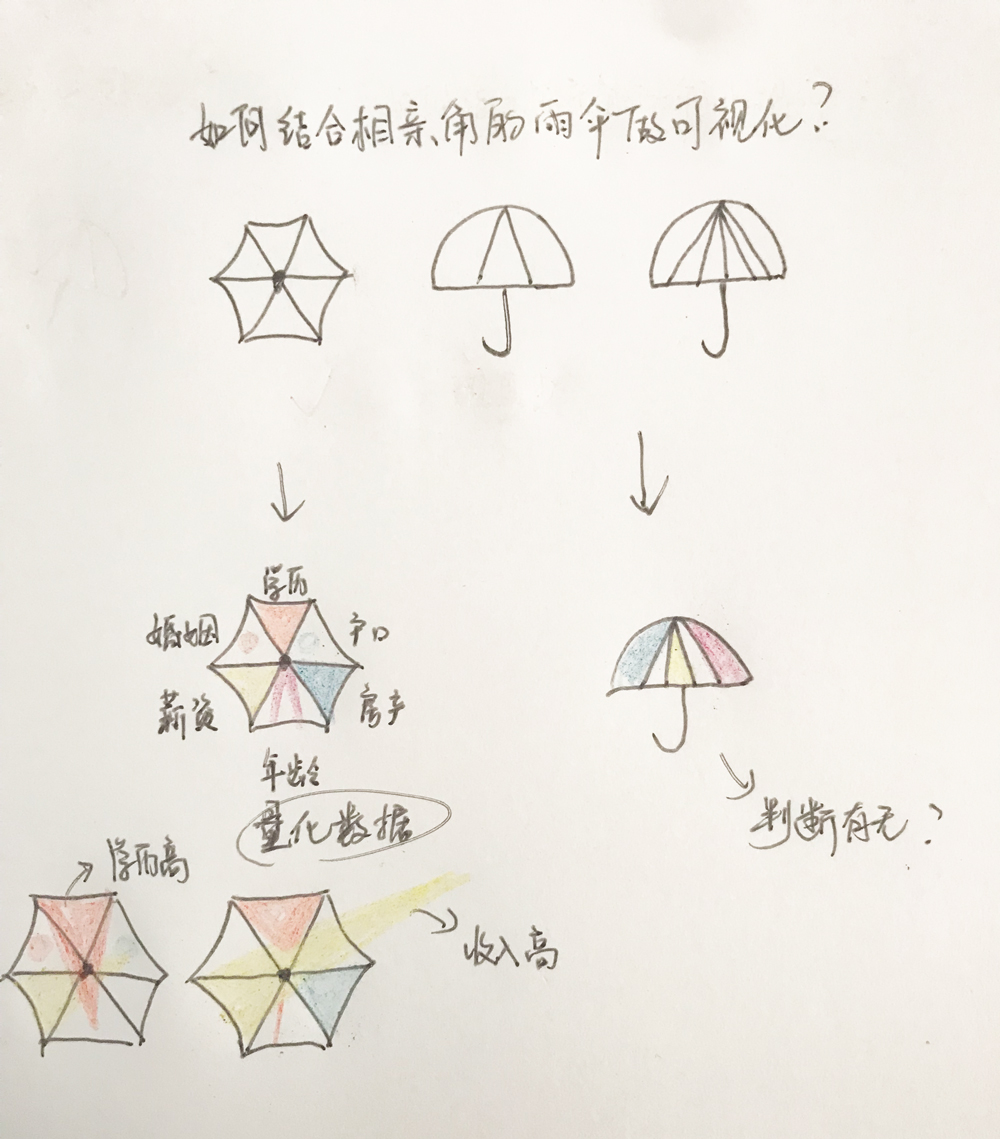 如何结合相亲角的雨伞做可视化?
学历
婚姻
户口
薪资
房产
年龄
量化数据
判断有无?
学历高
收入高